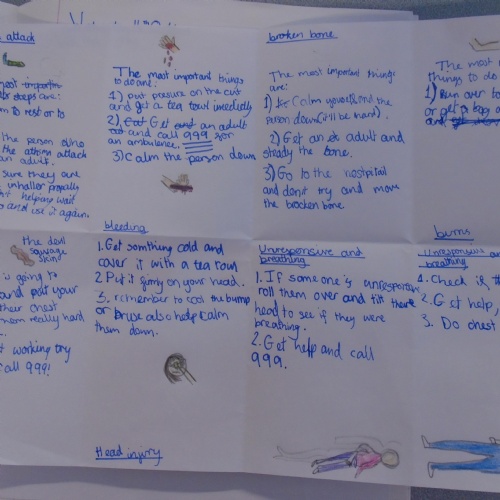 attack
most important
steps are:
to rest or to
the person who
the asthma attack
an adult.
sure they are
inhaller propally
helping wait
and use it again.
The most important things
to do are:
1) put presure on the cut
and get a tea towl imedietly
2) Get an adult
and call 999 for
an ambulence.
3) Calm the person down
bleeding
broken bone
The most important things
are:
1) Calm yourself and the
person down (it'll be hard).
2) Get an adult and
steady the bone.
3) Go to the hospital
and don't try and move
the brocken bone
The most
things to do
1) Run over to
or get a bag
burns
the devil
sausage
is going to
and pat your
their chest
them really hard
working try
call 999!
1. Get somthing cold and
cover it with a tea towl
2. Put it firmly on your head.
3. remember to cool the bump
or bruse also help calm
them down.
Head injury
Unresponsive and
breathing
1. If some one is unresponsive
roll them over and tilt there
head to see if they were
breathing.
2. Get help and call
999.
Unresponsive and
breathing
1. Check if th
2. Get help,
3. Do chest